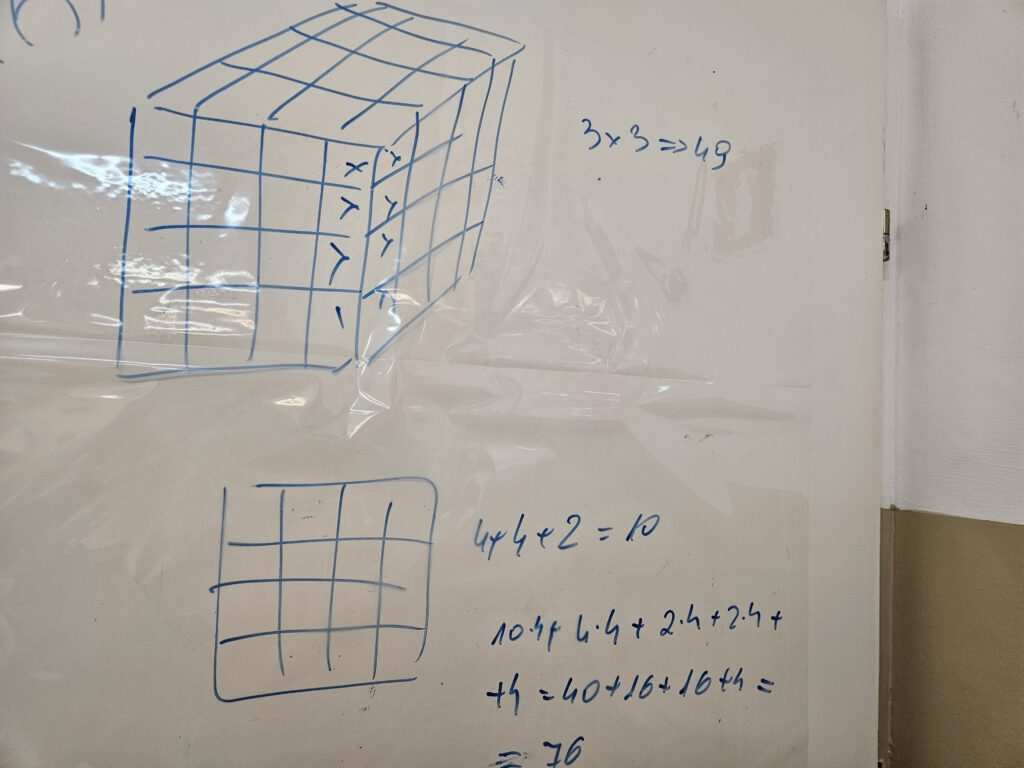 3×3 => 49
4+4+2 = 10
10·4+ 4·4 + 2·4 + 2·4 +
+4 = 40+16+16+4 =
= 76